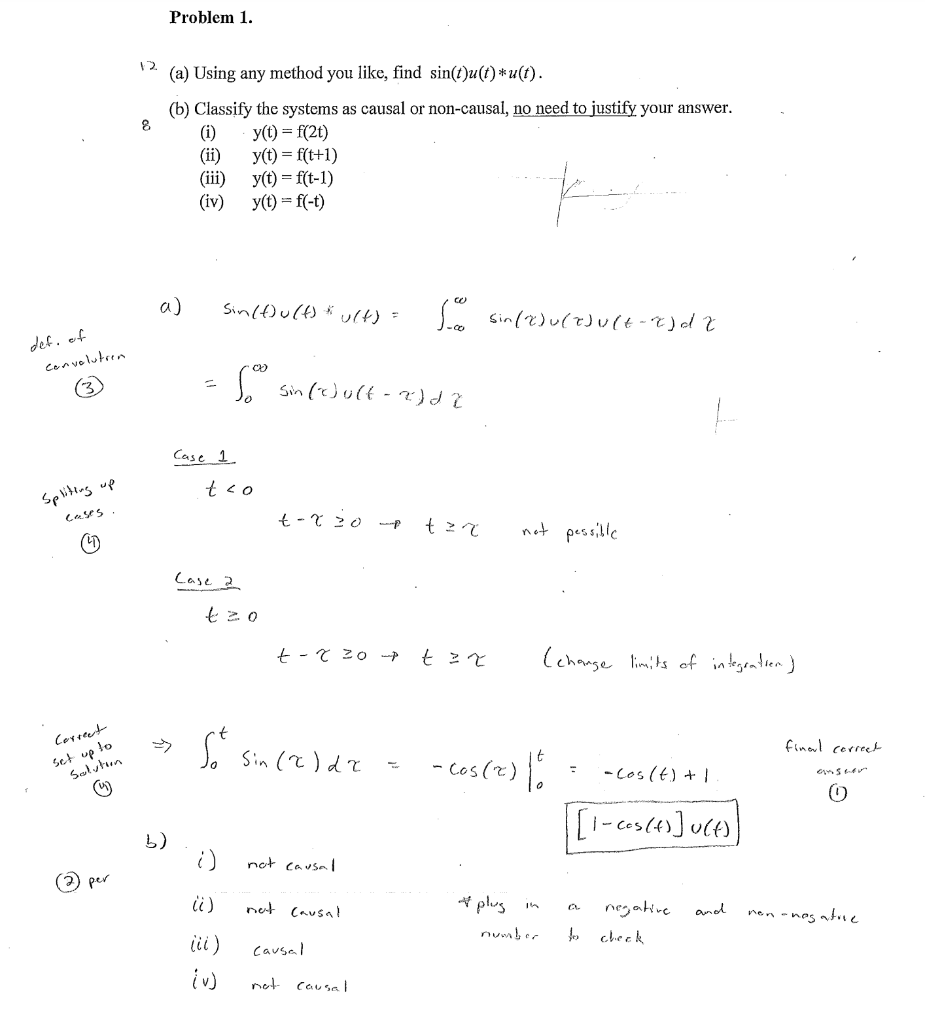 Problem 1.
12 (a) Using any method you like, find sin(t)u(t)*u(t).
8 (b) Classify the systems as causal or non-causal, no need to justify your answer.
(i) y(t) = f(2t)
(ii) y(t) = f(t+1)
(iii) y(t) = f(t-1)
(iv) y(t) = f(-t)
a) sin(t)u(t) * u(t) = ∫_{-∞}^{∞} sin(τ)u(τ)u(t-τ)dτ
def. of
convolution
③
= ∫_0^∞ sin(τ)u(t-τ)dτ
Case 1
t < 0
t-τ ≥ 0 → t ≥ τ not possible
Spliting up
cases.
④
Case 2
t ≥ 0
t-τ ≥ 0 → t ≥ τ (change limits of integration)
Correct
set up to
solution
④
⇒ ∫_0^t sin(τ)dτ = -cos(τ)|_0^t = -cos(t)+1
final correct
answer
①
[1-cos(t)]u(t)
b)
② per
i) not causal
ii) not causal
iii) causal
iv) not causal
* plug in a negative and non-negative
number to check